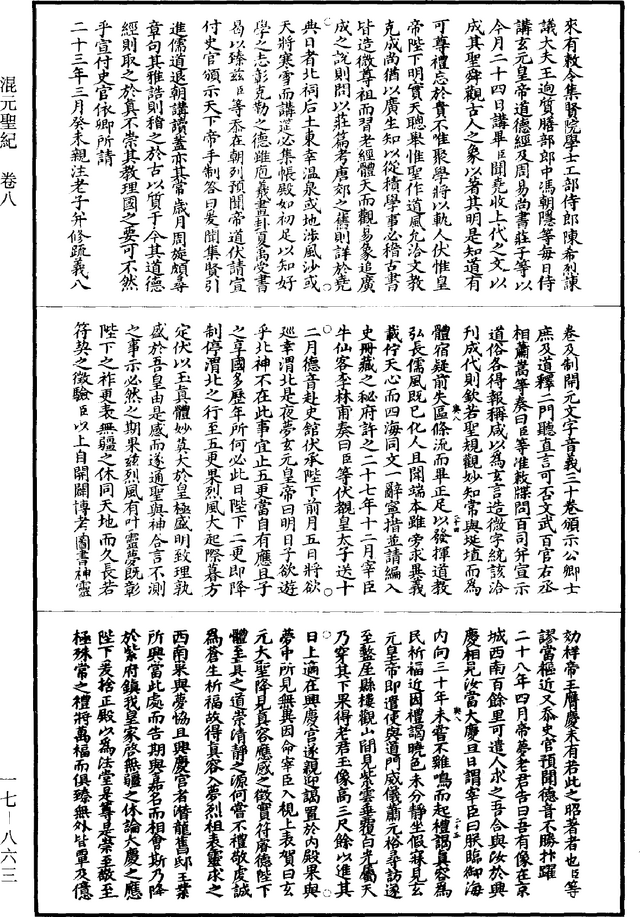 來有敕令集賢院學士工部侍郎陳希烈諫
議大夫王迥質膳部郎中馮朝隱等每日侍
講玄元皇帝道德經及周易尚書莊子等以
今月二十四日講畢臣聞堯收上代之文以
成其聖舜觀古人之象以著其明是知道有
可尊禮忘於貴不惟聚學將以軌人伏惟皇
帝陛下明實天聰舉惟聖作道風允洽文教
克成尚猶以廣生知以從積學事必稽古書
皆造微尊祖而習老經體天而觀易象追廣
成之說則問以莊篇考唐郊之舊則詳於堯
典日者北祠后土東幸溫泉或地涉風沙或
天將寒雪而講筵必集帳殿如初足以知好
學之志彰克勤之德雖庖羲畫卦夏禹受書
曷以臻茲臣等忝在朝列預聞帝道伏請宣
付史官頒示天下帝手制答曰爰聞集賢引
進儒道退朝講讀蓋亦其常歲月周旋頗尋
章句其雅誥則稽之於古以質于今其道德
經則取之於真不崇其教理國之要可不然
乎宣付史官依卿所請
二十三年三月癸未親注老子并修疏義八
卷及制開元文字音義三十卷頒示公卿士
庶及道釋二門聽直言可否文武百官右丞
相蕭嵩等奏曰臣等准敕牒問百司并宣示
道俗各得報稱咸以為玄言造微字統該洽
刊成代則欽若聖規觀妙知常與埏埴而為
體宿疑前失區條流而畢正足以發揮道教
弘長儒風既已化人且開端本雖旁求異義
載佇天心而四海同文一辭寧措並請編入
史冊藏之祕府許之二十七年十二月宰臣
牛仙客李林甫奏曰臣等伏觀皇太子送十
二月德音赴史館伏承陛下前月五日將欲
巡幸渭北是夜夢玄元皇帝曰明日子欲遊
乎北神不在此事宜止五更當自有應且子
之享國多歷年所何必此日陛下二更即降
制停渭北之行至五更果烈風大起際暮方
定伏以王真體妙莫大於皇極盛明致理孰
盛於吾皇由是感而遂通聖與神合言不測
之事示必然之期果茲烈風有叶靈夢既彰
陛下之祚更表無疆之休同天地而久長若
符契之徵驗臣以上自開闢博考圖書神靈
効祥帝王膺慶未有若此之昭著者也臣等
謬當樞近又忝史官預聞德音不勝抃躍
二十八年四月帝夢老君告曰吾有像在京
城西南百餘里可遣人求之吾合與汝於興
慶相見汝當大慶旦日謂宰臣曰朕臨御海
內向三十年未嘗不雞鳴而起禮謁真容為
民祈福近因禮謁曉色未分靜坐假寐見玄
元皇帝即遣使與道門威儀蕭元裕尋訪遂
至盩厔縣樓觀山間見紫雲垂覆白光屬天
乃穿其下果得老君玉像高三尺餘以進其
日上適在興慶宮遂親迎謁置於內殿果與
夢中所見無異因命宰臣入視上表賀曰玄
元大聖降見真容應感之徵實符睿德陛下
體至真之道崇清靜之源何嘗不禮敬虔誠
為蒼生祈福故得真容入夢烈祖表靈求之
西南果與夢協且興慶宮者潛龍舊邸王業
所興當此處而告期與嘉名而相會斯乃降
於紫府鎮我皇家啓無疆之休論大慶之應
陛下爰捨正殿以為法堂是等是崇至敬至
極殊常之禮將萬福而俱臻無外皆覃及億
混元聖紀　卷八
一七－八六三